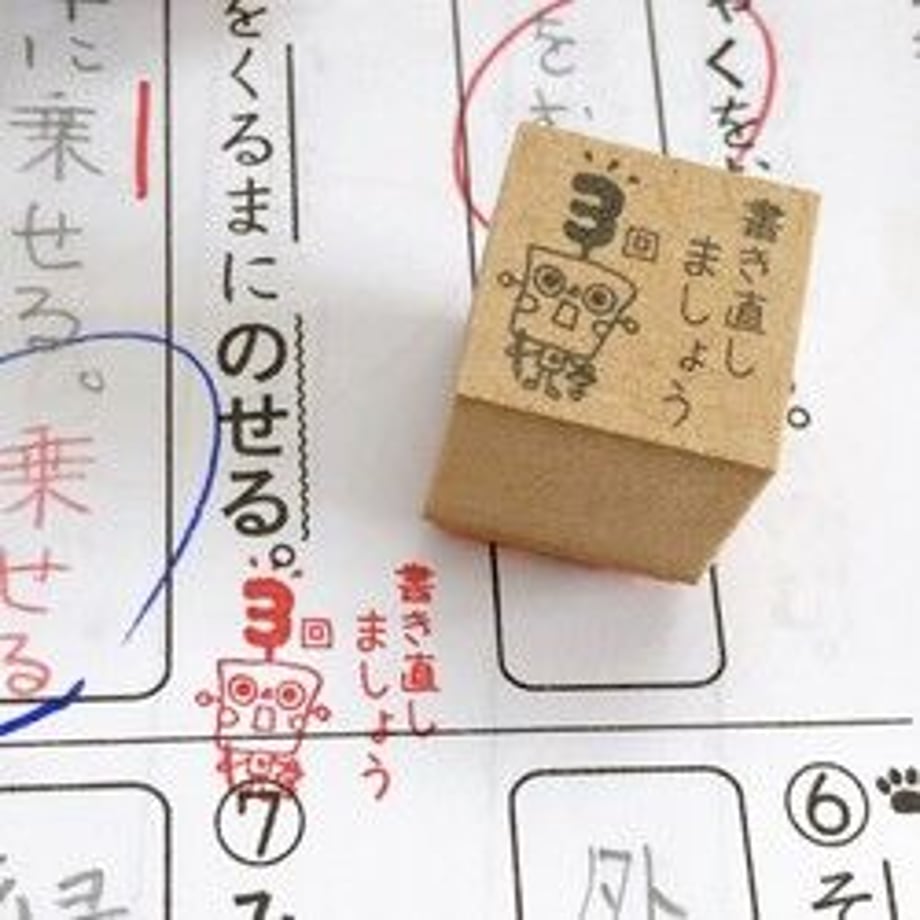 くを
を
をくるまにのせる。
に乗せる。乗せる
書き直し
ましょう
3回
書き直し
ましょう
3回
⑥
そ
外
⑦